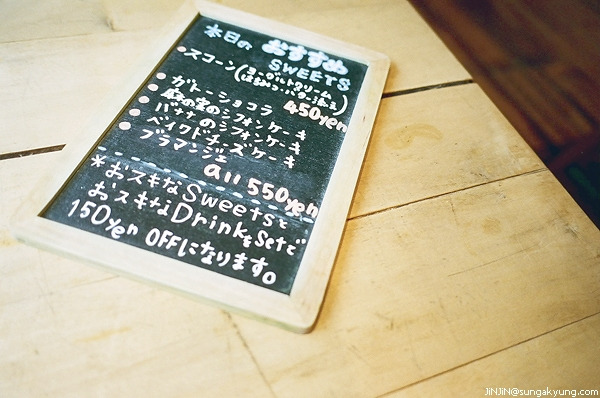 本日の おすすめ
SWEETS
• スコーン(ヨーグルトクリーム
はちみつ・バター添え)
450yen
• ガトーショコラ
• 木の実のシフォンケーキ
• バナナのシフォンケーキ
• ベイクドチーズケーキ
• ブラマンジェ
all 550yen
*おスキなSweetsと
おスキなDrinkをSetで
150yen OFFになります。
JiNJiN@sungakyung.com